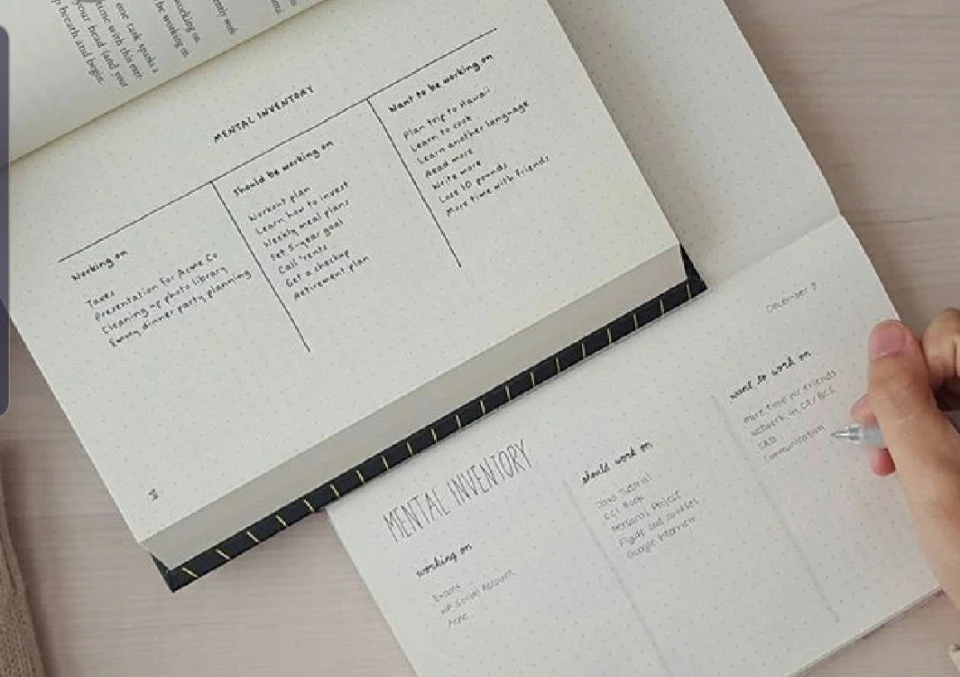 one task sparks a
time with this exer
your head (and your
p breath and begin.
working on.
be working on.
MENTAL INVENTORY
Working on
Taxes
Presentation for Acme Co
Cleaning up photo library
Emmy dinner party planning
Should be working on
Workout plan
Learn how to invest
Weekly meal plans
Set 5-year goal
Call 'rents
Get a checkup
Retirement plan
Want to be working on
Plan trip to Hawaii
Learn to cook
Learn another language
Read more
Write more
Lose 10 pounds
More time with friends
December 9
MENTAL INVENTORY
working on
Exams
Social Account
Acne
should work on
Java Tutorial
CCI Book
Personal Project
Figure out courses
Google Interview
want to work on
more time w/ friends
network in
communication